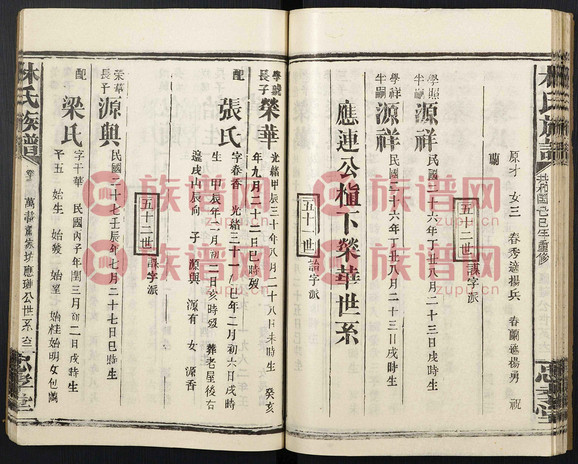 族譜
共和國己巳年重修
忠孝堂
原才 女三 春秀適楊兵 春蘭適楊勇 祝
蘭
五十二世 謨字派
學照
半嗣 源祥 民國二十六年丁丑八月二十三日戌時生
學祥
半嗣 源祥 民國二十六年丁丑八月二十三日戌時生
五十一世 誥字派
應連公植下榮華世系
長子 榮華 光緒甲辰三十年八月二十八日未時生 癸亥
年九月二十二日巳時歿
配 張氏 字春香 光緒三十一乙巳年二月初六日戌時
生 甲辰年二月初二日亥時歿 葬老屋後右
邊戌山辰向 子 源興 源有 女 源香
五十二世 謨字派
榮華
長子 源興 民國二十七壬辰年七月二十七日巳時生
配 梁氏 字干華 民國丙子年閏三月初二日戌時生
子五 始生 始發 始星 始桂始明女包蘭
林氏族譜
應璉公世系
忠孝堂
族谱网
zupu.cn